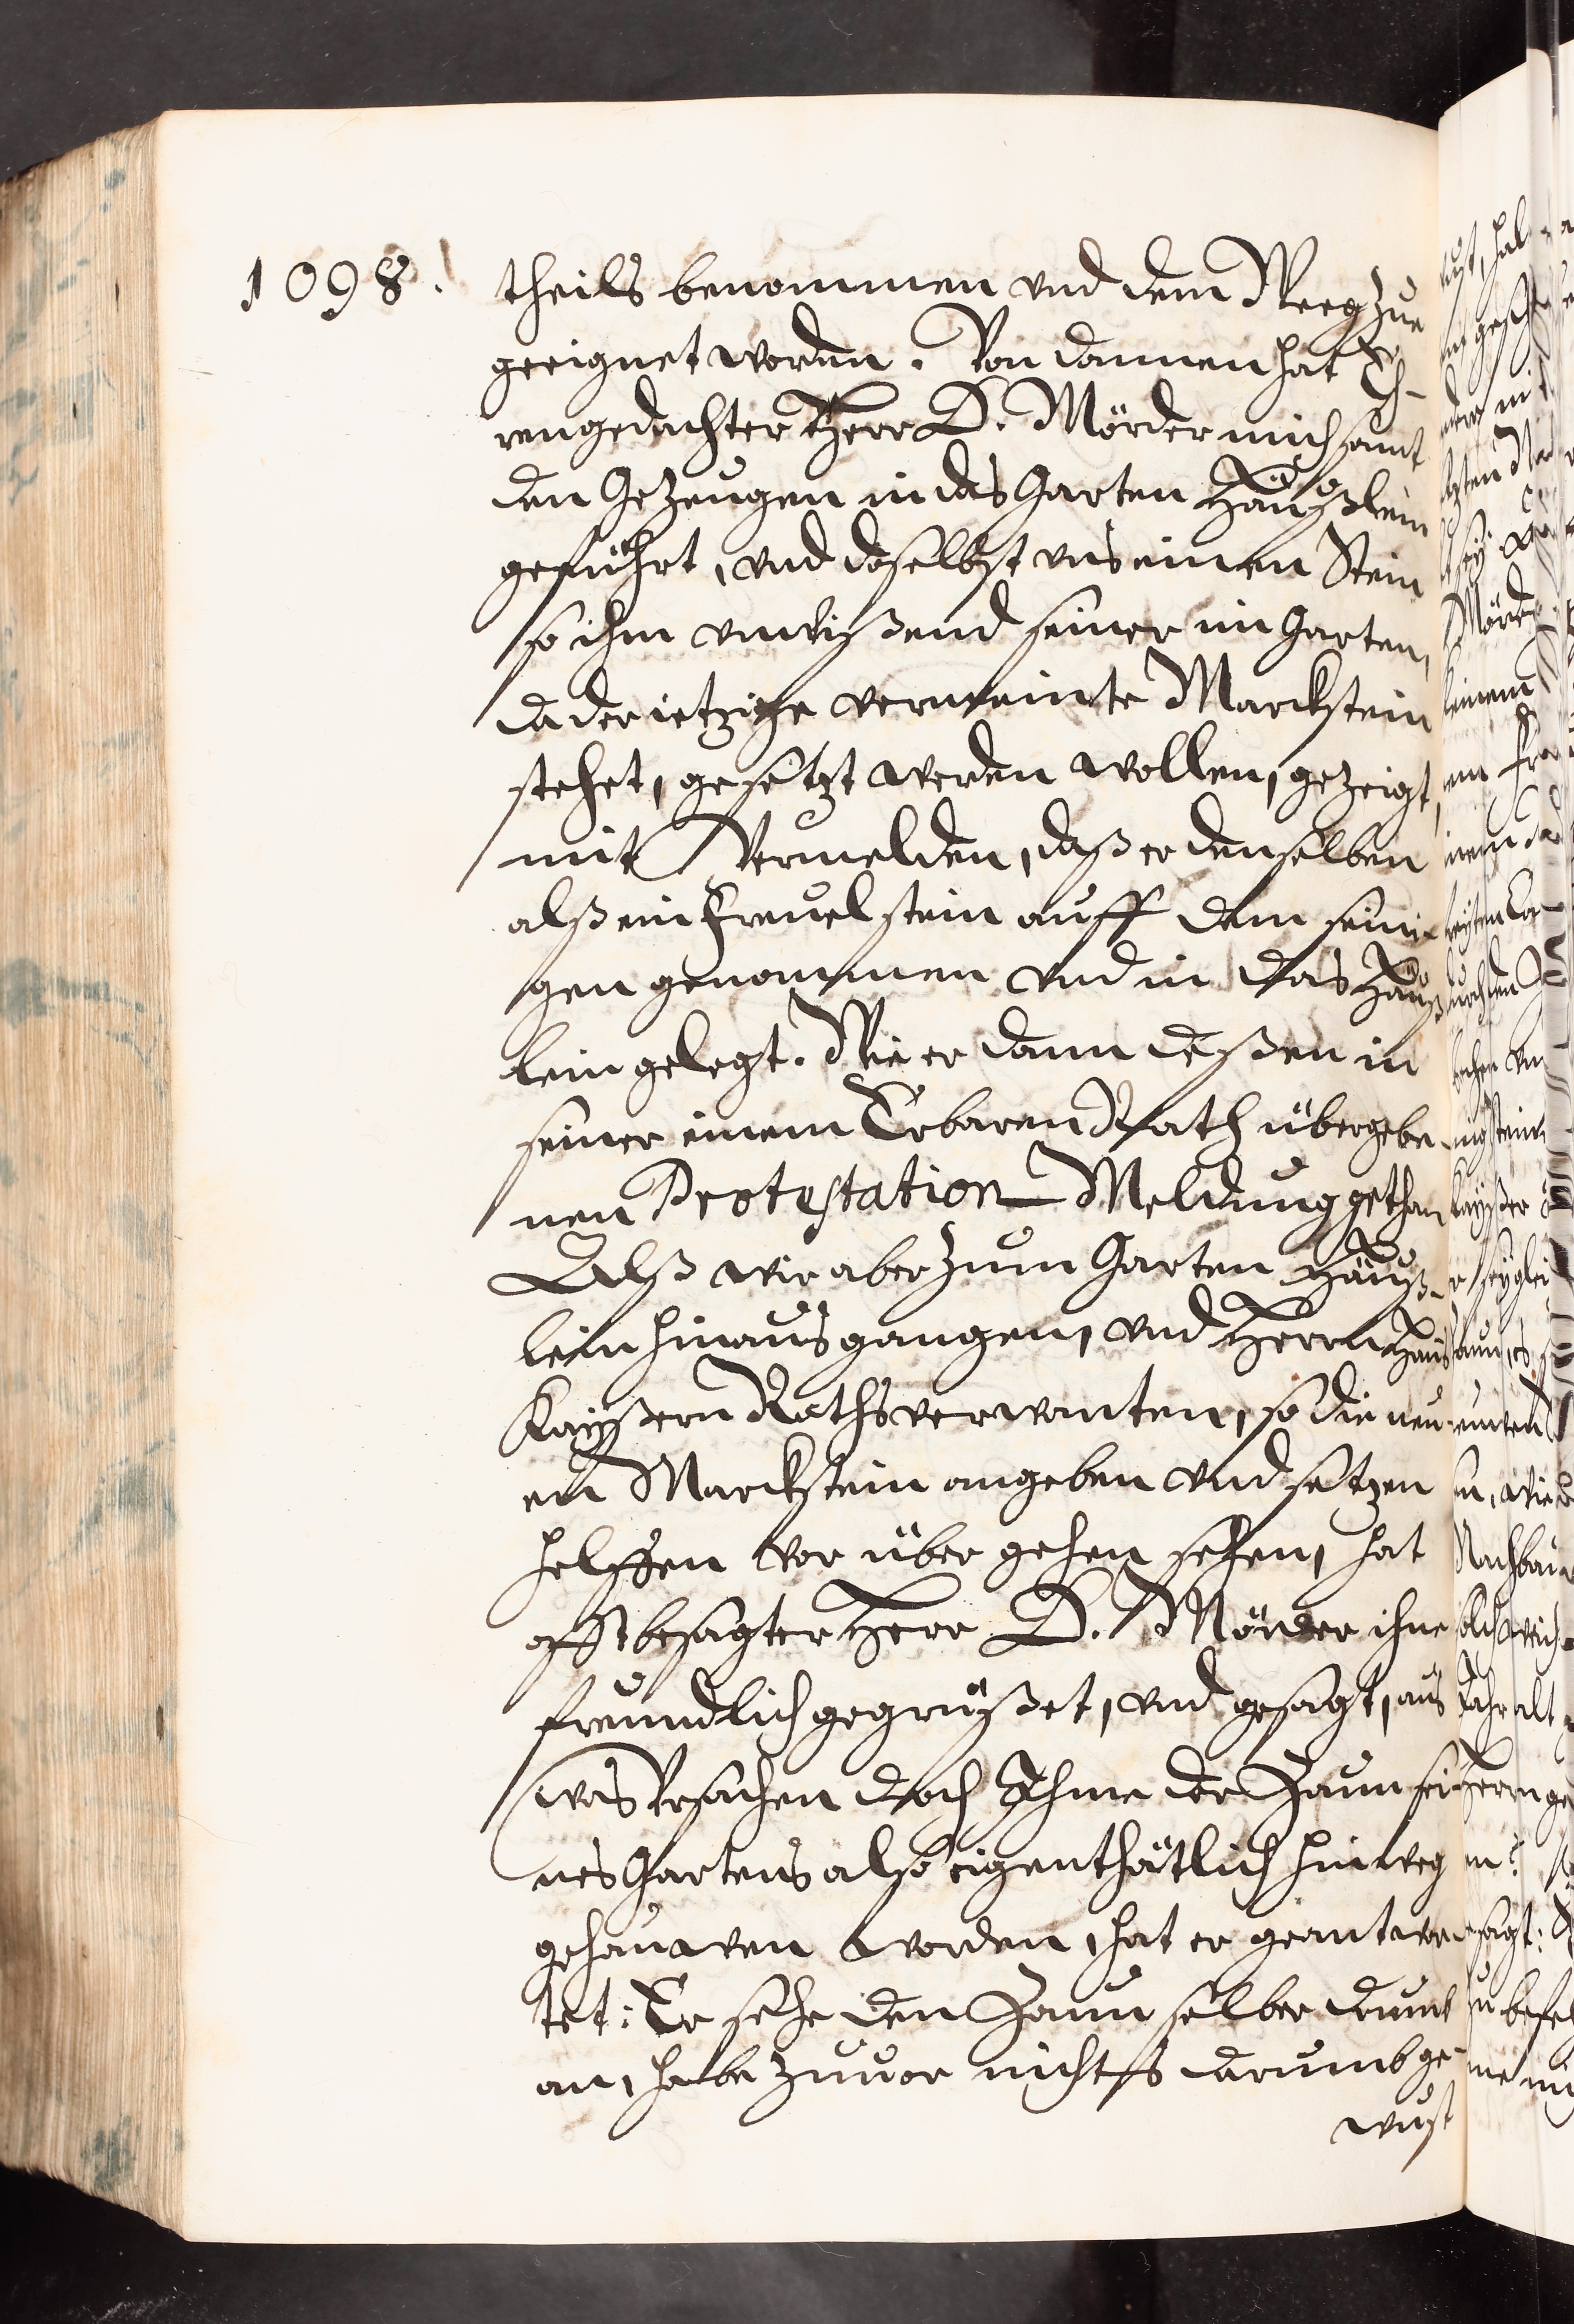 1098.
theils benommen vnd dem Weeg zue
geeignet worden. Von dannen hat Eh-
rengedachter Herr D. Mörder mich samt
den Gezeugen in das Garten Häußlein
geführt, vnd daselbst vns einen Stein
so ihm vnwißend seiner im Garten,
da der ietzige vermeinte Marckstein
stehet, gesetzt werden wollen, gezeigt,
mit Vermelden, daß er denselben
alß ein Freuelstein auff dem seini-
gen genommen vnd in das Häuß-
lein gelegt. Wie er dann deßen in
seiner einem Erbaren Rath übergebe-
nen Protestation Meldung gethan
Alß wir aber zum Garten Häuß-
lein hinaus gangen, vnd Herrn Hanß
Kayßern Rathsverwanten, so die neu-
en Marckstein angeben vnd setzen
helffen vor über gehen sehen, hat
offtbesagter Herr D. Mörder ihne
freundlich gegrüßet, vnd gesagt, aus
was Vrsachen doch Ihme der Zaun sei-
nes Gartens also eigenthätlich hinweg
gehauwen worden, hat er geantwor-
tet: Er sehe den Zaun selber drumb
an, habe zuuor nichts darumb ge-
wust